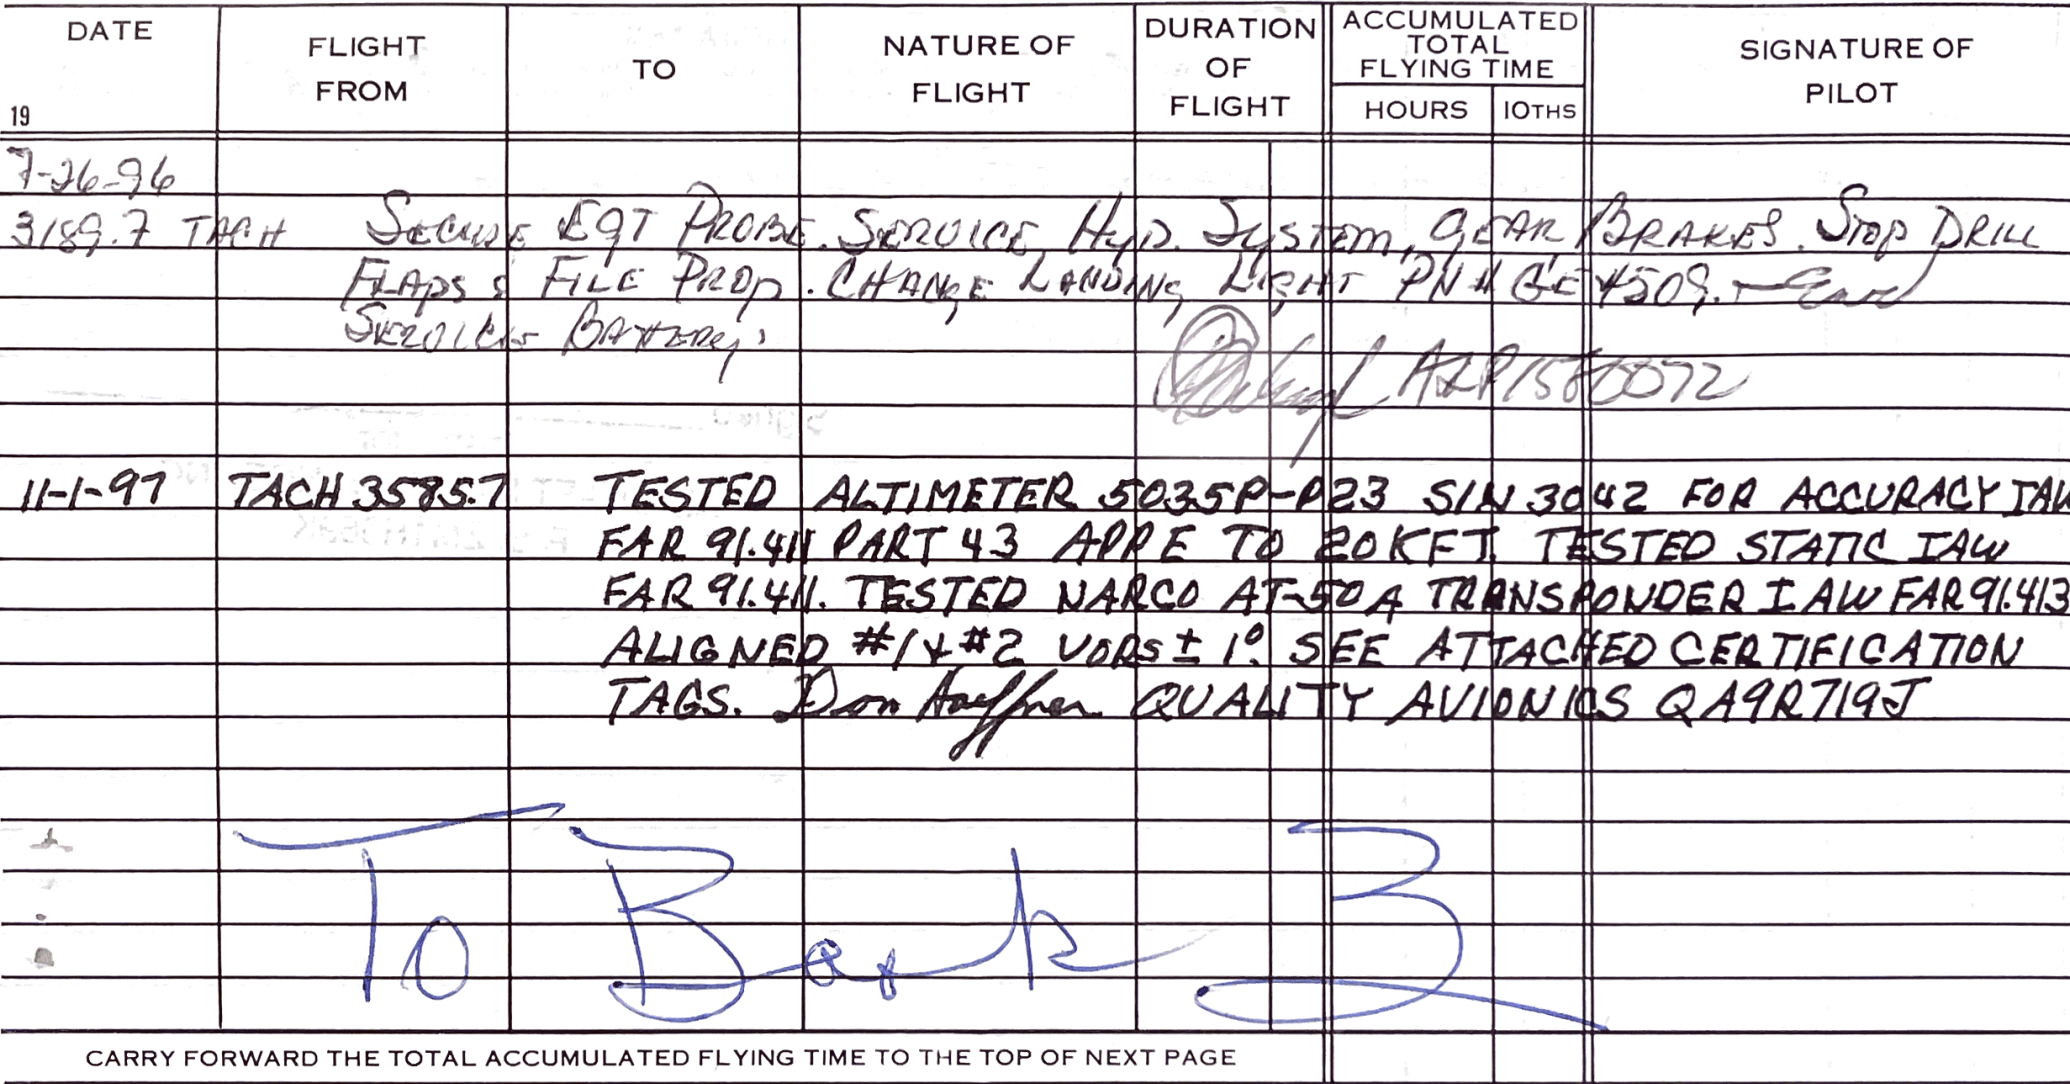 DATE
19
FLIGHT
FROM
TO
NATURE OF
FLIGHT
DURATION
OF
FLIGHT
ACCUMULATED
TOTAL
FLYING TIME
HOURS
10THS
SIGNATURE OF
PILOT
7-26-96
3189.7 TACH SECURE EGT PROBE. SERVICE HYD. SYSTEM, GEAR, BRAKES. STOP DRILL
FLAPS & FILE PROP. CHANGE LANDING LIGHT PN# GE 4509.
SERVICE BATTERY.
A&P 1580072
11-1-97 TACH 3585.7 TESTED ALTIMETER 5035P-P23 S/N 3042 FOR ACCURACY IAW
FAR 91.411 PART 43 APP E TO 20KFT. TESTED STATIC IAW
FAR 91.411. TESTED NARCO AT-50A TRANSPONDER IAW FAR 91.413
ALIGNED #1 & #2 VORS ± 1°. SEE ATTACHED CERTIFICATION
TAGS. Don QUALITY AVIONICS QA9R719J
To Book 3
CARRY FORWARD THE TOTAL ACCUMULATED FLYING TIME TO THE TOP OF NEXT PAGE